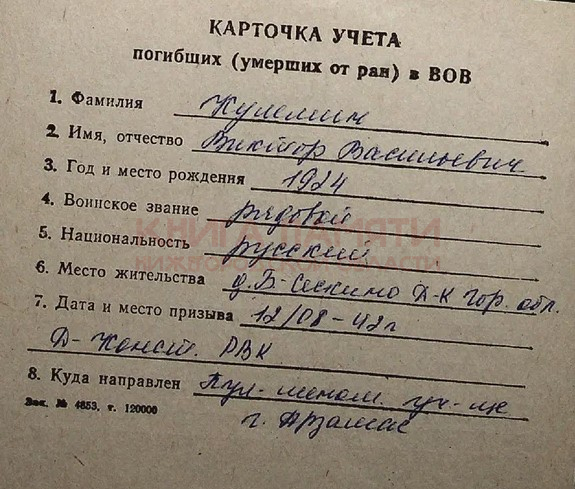 КАРТОЧКА УЧЕТА
погибших (умерших от ран) в ВОВ
1. Фамилия Кулемин
2. Имя, отчество Виктор Васильевич
3. Год и место рождения 1924
4. Воинское звание рядовой
КНИГА ПАМЯТИ
5. Национальность русский
НИЖЕГОРОДСКОЙ ОБЛАСТИ
6. Место жительства д. Б-Сескино Д-К Гор. обл.
7. Дата и место призыва 12/08-42г
Д-Конст. РВК
8. Куда направлен Пул-меном. уч-ще
Зак. № 4853, т. 120000
г. Арзамас